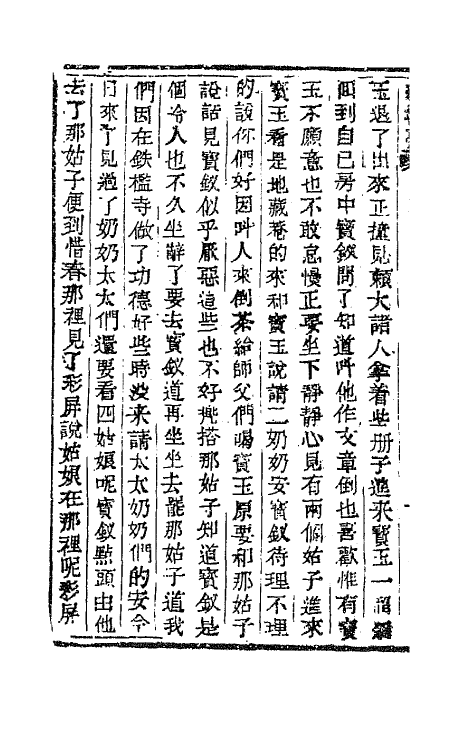 玉退了出來正撞見賴大諸人拿着些册子進來寶玉一溜烟
回到自已房中寶釵問了知道呌他作文章倒也喜歡惟有寶
玉不願意也不敢怠慢正要坐下靜靜心見有兩個姑子進來
寶玉看是地藏菴的來和寶玉說請二奶奶安寶釵待理不理
的說你們好因呌人來倒茶給師父們喝寶玉原要和那姑子
說話見寶釵似乎厭惡這些也不好興搭那姑子知道寶釵是
個冷人也不久坐辭了要去寶釵道再坐坐去罷那姑子道我
們因在鉄檻寺做了功德好些時没来請太太奶奶們的安今
日來了見過了奶奶太太們還要看四姑娘呢寶釵點頭由他
去了那姑子便到惜春那裡見了彩屏說姑娘在那裡呢彩屏